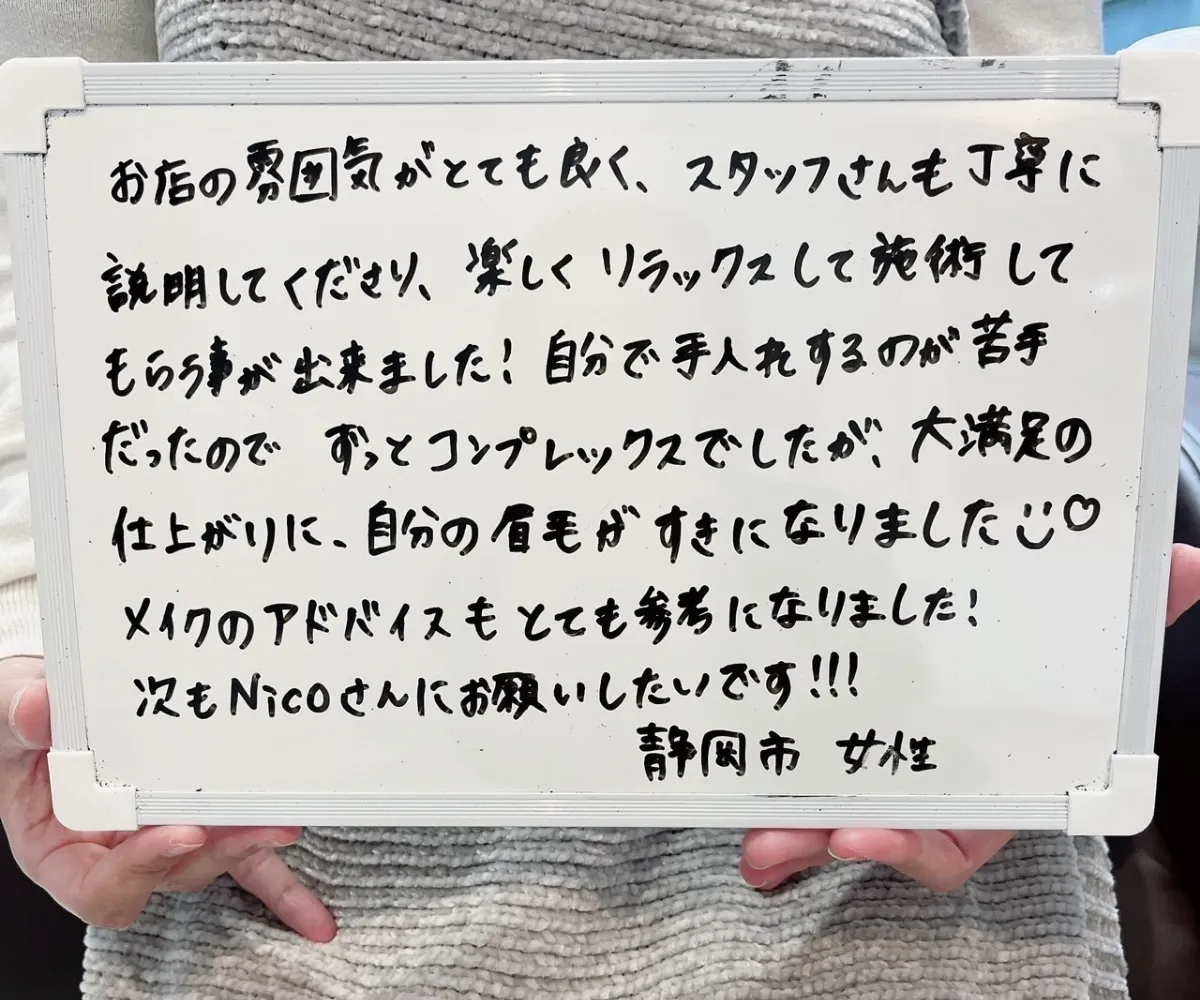 お店の雰囲気がとても良く、スタッフさんも丁寧に
説明してくださり、楽しくリラックスして施術して
もらう事が出来ました！自分で手入れするのが苦手
だったので ずっとコンプレックスでしたが、大満足の
仕上がりに、自分の眉毛がすきになりました☺♡
メイクのアドバイスもとても参考になりました！
次もNicoさんにお願いしたいです！！！
静岡市 女性